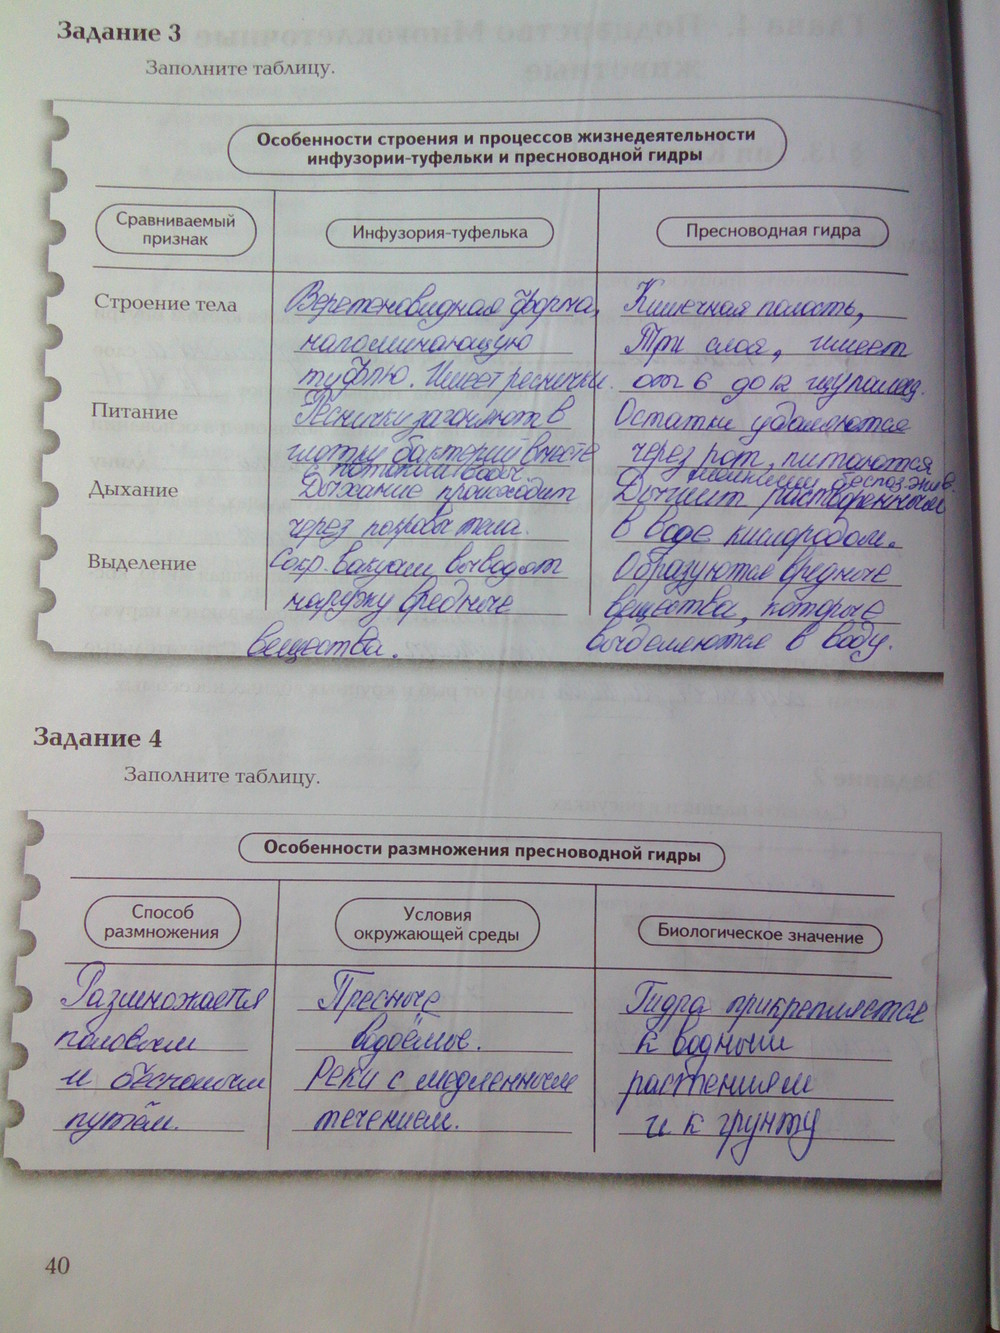 Задание 3
Заполните таблицу.
Особенности строения и процессов жизнедеятельности
инфузории-туфельки и пресноводной гидры
Сравниваемый
признак
Инфузория-туфелька
Пресноводная гидра
Строение тела
Веретеновидная форма,
напоминающую
туфлю. Имеет реснички.
Кишечная полость,
Три слоя, имеет
от 6 до 12 щупалец.
Питание
Реснички загоняют в
глотку бактерий вместе
с потоком воды
Остатки удаляются
через рот, питаются
мелкими беспозвнв.
Дыхание
Дыхание происходит
через покровы тела.
Дышит растворенным
в воде кислородом.
Выделение
Сокр. вакуоли выводят
наружу вредные
вещества.
Образуются вредные
вещества, которые
выделяются в воду.
Задание 4
Заполните таблицу.
Особенности размножения пресноводной гидры
Способ
размножения
Условия
окружающей среды
Биологическое значение
Размножается
половым
и бесполым
путём.
Пресные
водоёмы.
Реки с медленным
течением.
Гидра прикрепляется
к водным
растениям
и к грунту
40